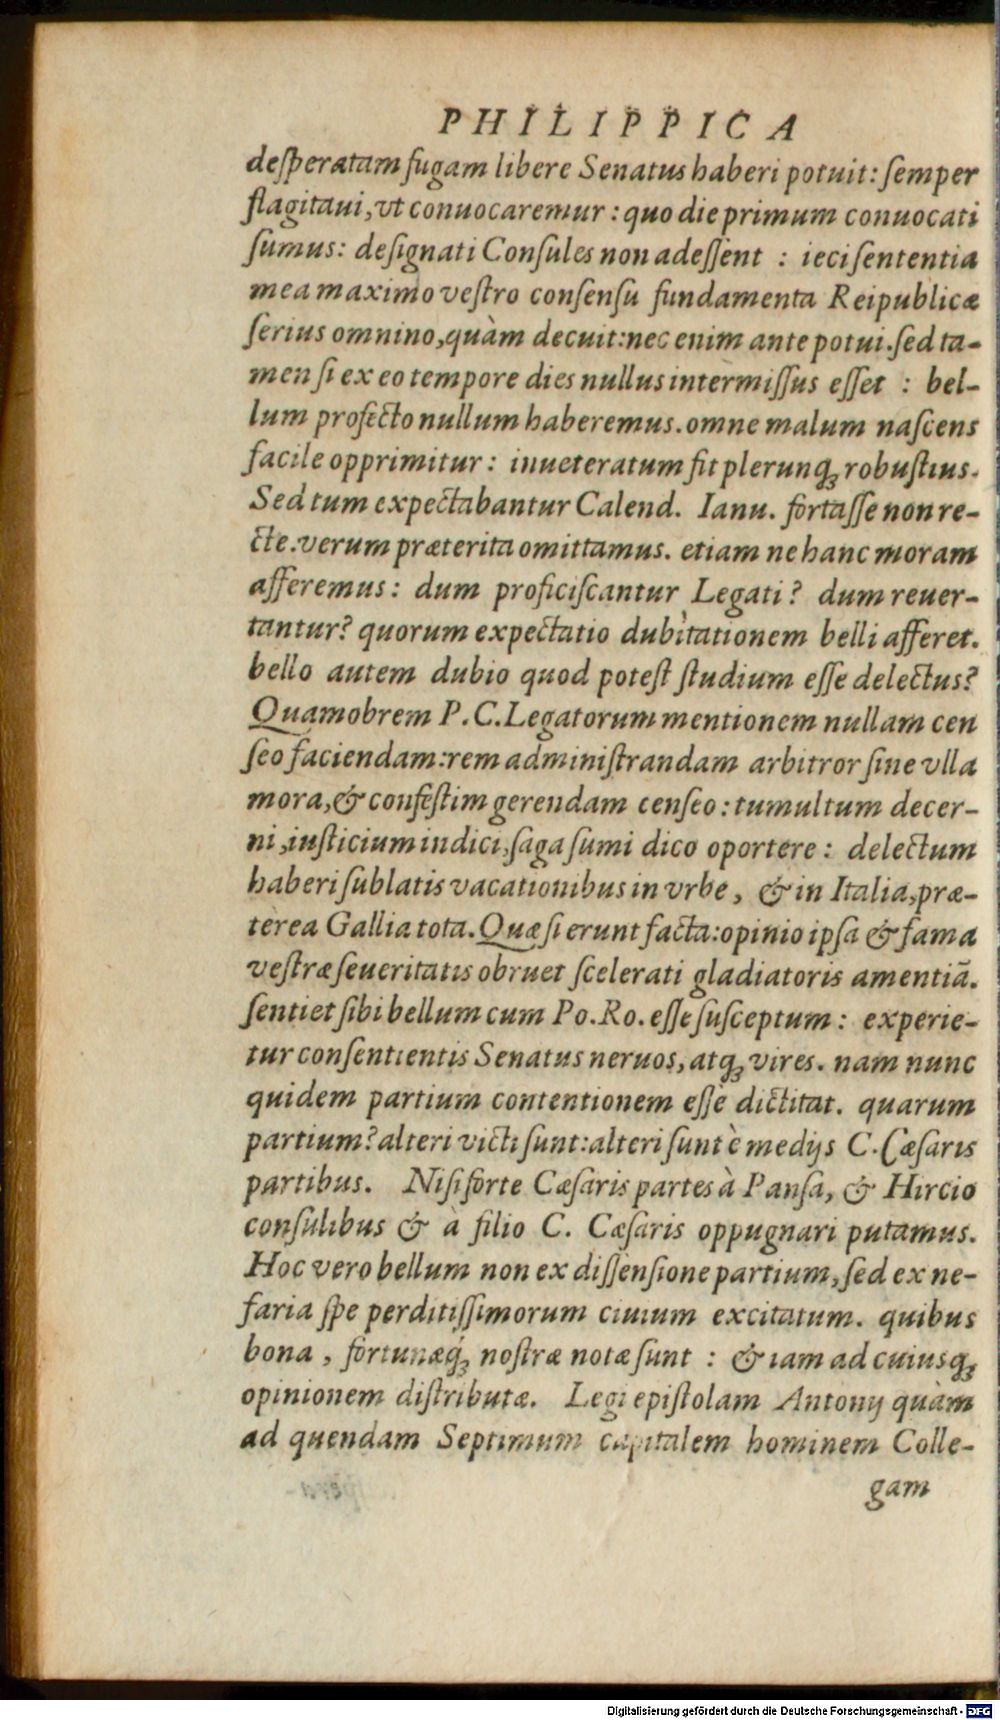 PHILIPPICA
deſperatam fugam libere Senatus haberi potuit: ſemper
flagitaui, vt conuocaremur: quo die primum conuocati
ſumus: deſignati Conſules non adeſſent : ieci ſententia
mea maximo veſtro conſenſu fundamenta Reipublicæ
ſerius omnino, quàm decuit: nec enim ante potui. ſed ta-
men ſi ex eo tempore dies nullus intermiſſus eſſet : bel-
lum profecto nullum haberemus. omne malum naſcens
facile opprimitur: inueteratum fit plerunq; robuſtius.
Sed tum expectabantur Calend. Ianu. fortaſſe non re-
cte. verum præterita omittamus. etiam ne hanc moram
afferemus: dum proficiſcantur Legati? dum reuer-
tantur? quorum expectatio dubitationem belli afferet.
bello autem dubio quod poteſt ſtudium eſſe delectus?
Quamobrem P.C. Legatorum mentionem nullam cen
ſeo faciendam: rem adminiſtrandam arbitror ſine vlla
mora, & confeſtim gerendam cenſeo: tumultum decer-
ni, iuſticium indici, ſaga ſumi dico oportere: delectum
haberi ſublatis vacationibus in vrbe, & in Italia, præ-
terea Gallia tota. Quæ ſi erunt facta: opinio ipſa & fama
veſtræ ſeueritatis obruet ſcelerati gladiatoris amentiā.
ſentiet ſibi bellum cum Po. Ro. eſſe ſuſceptum: experie-
tur conſentientis Senatus neruos, atq; vires. nam nunc
quidem partium contentionem eſſe dictitat. quarum
partium? alteri victi ſunt: alteri ſunt è medijs C. Cæſaris
partibus. Niſi forte Cæſaris partes à Panſa, & Hircio
conſulibus & à filio C. Cæſaris oppugnari putamus.
Hoc vero bellum non ex diſſenſione partium, ſed ex ne-
faria ſpe perditiſſimorum ciuium excitatum. quibus
bona, fortunæq́; noſtræ notæ ſunt : & iam ad cuiusq;
opinionem diſtributæ. Legi epiſtolam Antonij quàm
ad quendam Septimum capitalem hominem Colle-
gam
Digitalisierung gefördert durch die Deutsche Forschungsgemeinschaft - DFG